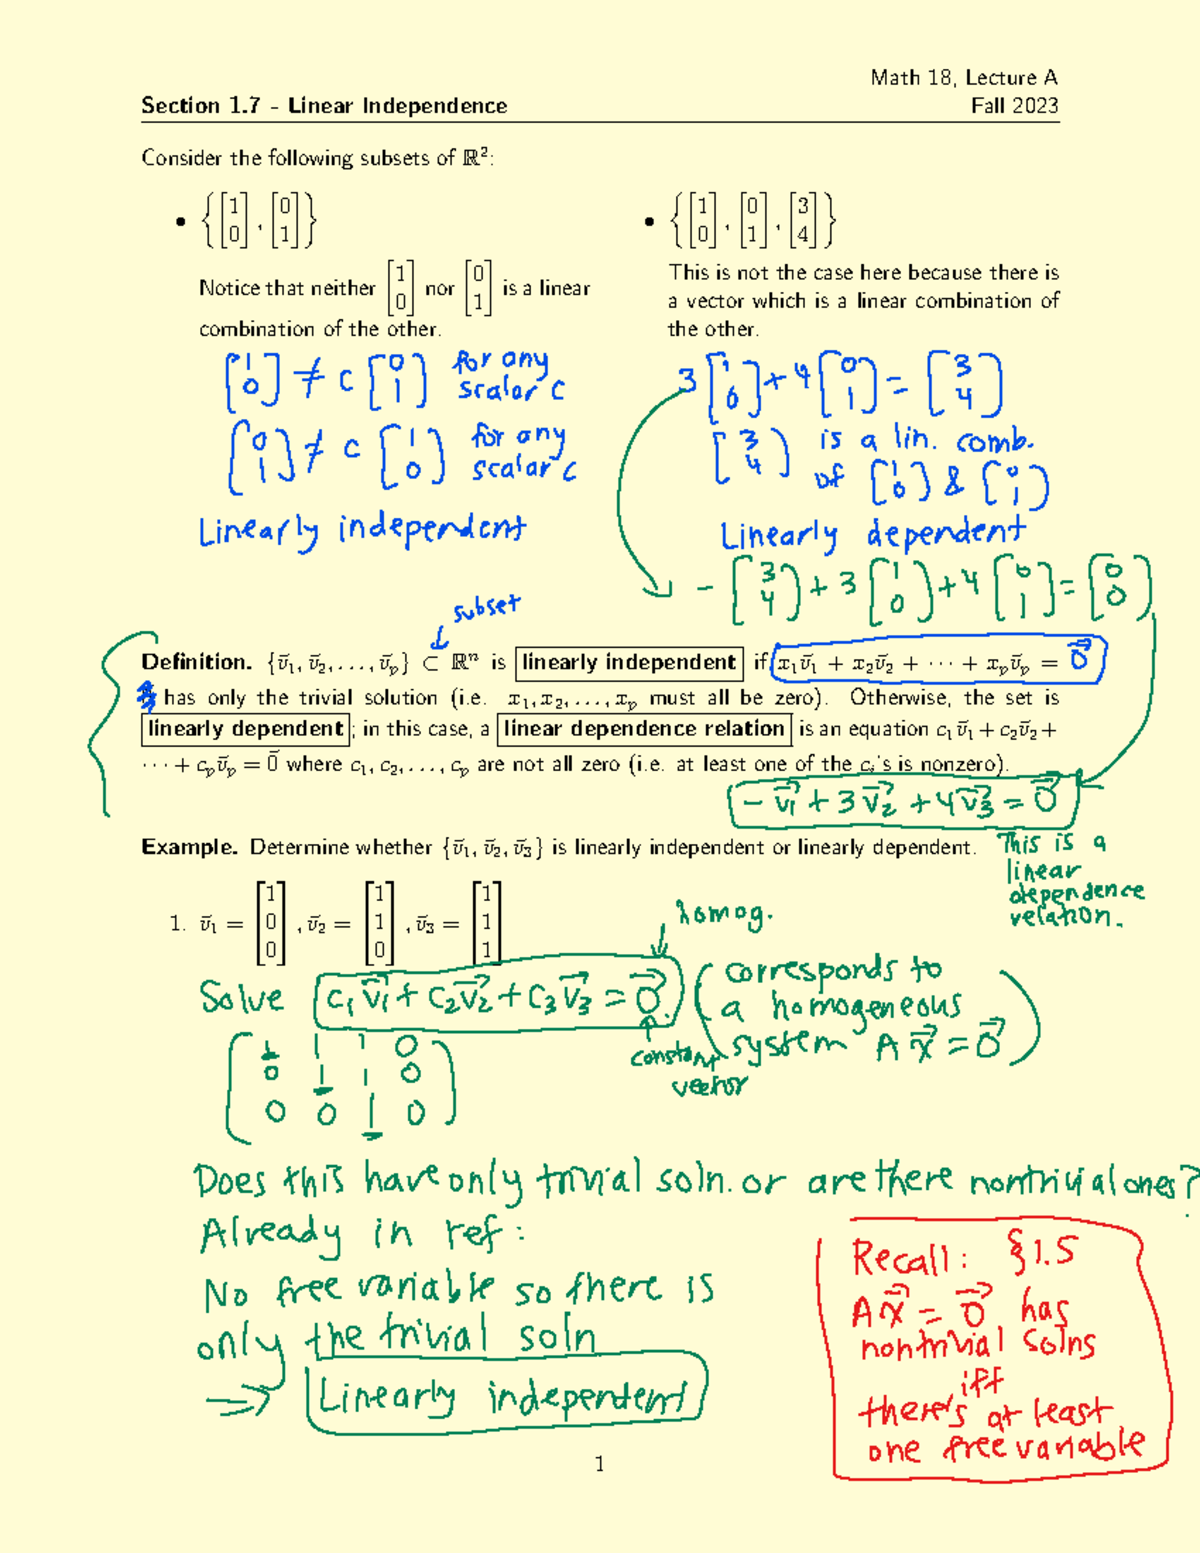 Math 18, Lecture A
Section 1.7 - Linear Independence Fall 2023
Consider the following subsets of ℝ²:
• {[1 0], [0 1]}
Notice that neither [1 0] nor [0 1] is a linear
combination of the other.
[1 0] ≠ c [0 1] for any scalar c
[0 1] ≠ c [1 0] for any scalar c
Linearly independent
• {[1 0], [0 1], [3 4]}
This is not the case here because there is
a vector which is a linear combination of
the other.
3 [1 0] + 4 [0 1] = [3 4]
[3 4] is a lin. comb.
of [1 0] & [0 1]
Linearly dependent
- [3 4] + 3 [1 0] + 4 [0 1] = [0 0]
subset
Definition. {v⃗₁, v⃗₂, . . . , v⃗ₚ} ⊂ ℝⁿ is linearly independent if x₁v⃗₁ + x₂v⃗₂ + ··· + xₚv⃗ₚ = 0⃗
has only the trivial solution (i.e. x₁, x₂, . . . , xₚ must all be zero). Otherwise, the set is
linearly dependent; in this case, a linear dependence relation is an equation c₁v⃗₁ + c₂v⃗₂ +
··· + cₚv⃗ₚ = 0⃗ where c₁, c₂, . . . , cₚ are not all zero (i.e. at least one of the cᵢ's is nonzero).
- v⃗₁ + 3 v⃗₂ + 4 v⃗₃ = 0⃗
This is a
linear
dependence
relation.
Example. Determine whether {v⃗₁, v⃗₂, v⃗₃} is linearly independent or linearly dependent.
1. v⃗₁ = [1 0 0], v⃗₂ = [1 1 0], v⃗₃ = [1 1 1]
homog.
Solve c₁v⃗₁ + c₂v⃗₂ + c₃v⃗₃ = 0⃗
(corresponds to
a homogeneous
system A x⃗ = 0⃗)
constant
vector
1 1 1 0
0 1 1 0
0 0 1 0
Does this have only trivial soln. or are there nontrivial ones?
Already in ref:
No free variable so there is
only the trivial soln
⇒ Linearly independent
Recall: §1.5
A x⃗ = 0⃗ has
nontrivial solns
iff
there's at least
one free variable
1